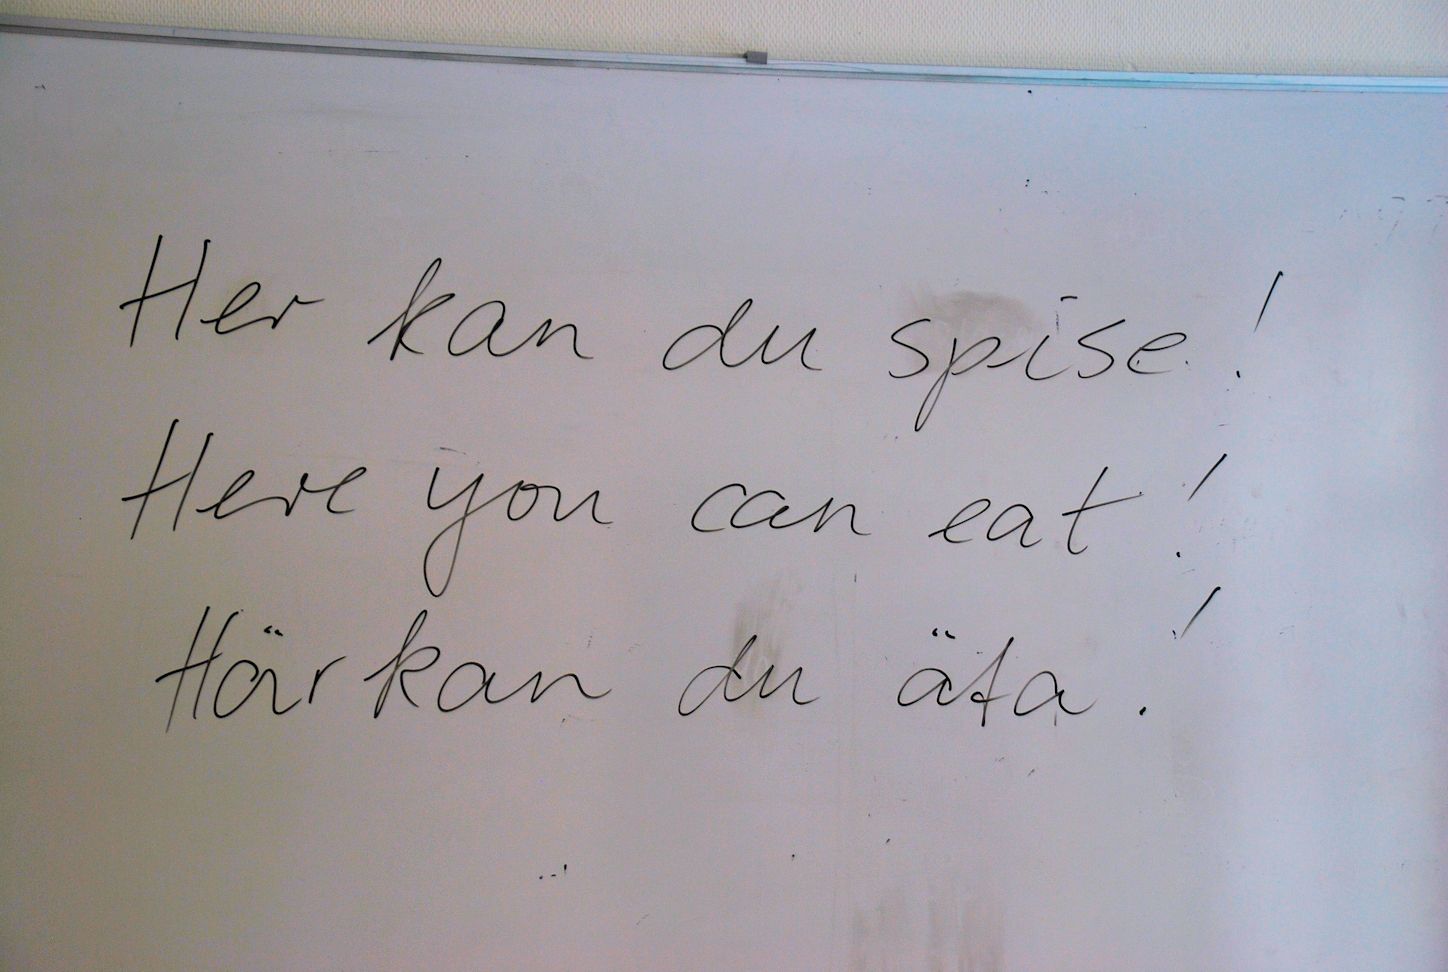 Her kan du spise!
Here you can eat!
Här kan du äta!